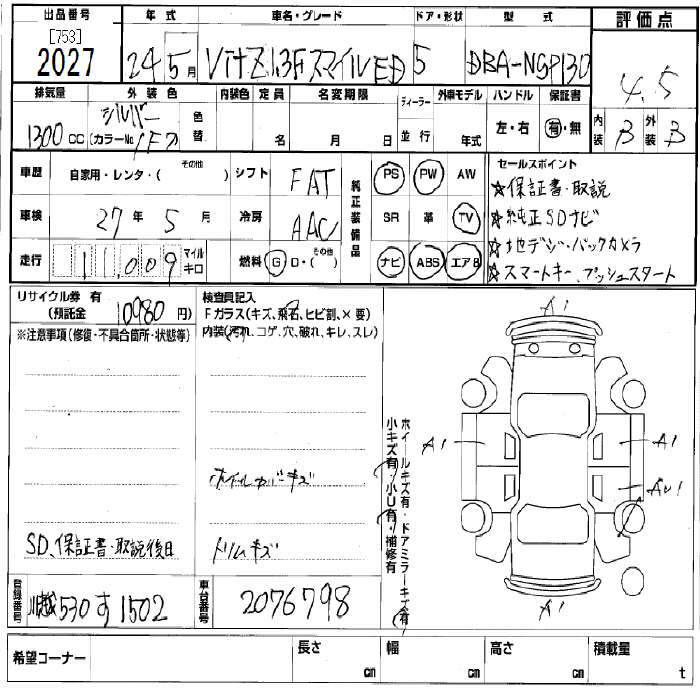 出品番号 年式 車名・グレード ドア・形状 型式 評価点
[753]
2027 24 5月 Vitz 1.3F スマイルED 5 DBA-NSP130 4.5
排気量 外装色 内装色 定員 名変期限 ディーラー 外車モデル ハンドル 保証書 内装 B 外装 B
1300cc シルバー 色替 名 月 日 並行 年式 左・右 有・無
(カラーNo. 1F7)
車歴 自家用・レンタ・(その他) シフト FAT 純正装備品 PS PW AW セールスポイント
☆保証書・取説
車検 27年 5月 冷房 AAC SR 革 TV ☆純正SDナビ
☆地デジ・バックカメラ
走行 11,009 マイル キロ 燃料 G D・(その他) ナビ ABS エアB ☆スマートキー、プッシュスタート
リサイクル券 有
(預託金 10980 円)
検査員記入
Fガラス(キズ、飛石、ヒビ割、×要)
※注意事項(修復・不具合箇所・状態等) 内装(汚れ、コゲ、穴、破れ、キレ、スレ)
A1
A1 A1
ホイルカバーキズ
SD、保証書・取説後日 トリムキズ
A1
小キズ有・小U有・補修有
ホイールキズ有・ドアミラーキズ有
登録番号 川越 530 す 1502 車台番号 2076798
希望コーナー 長さ cm 幅 cm 高さ cm 積載量 t